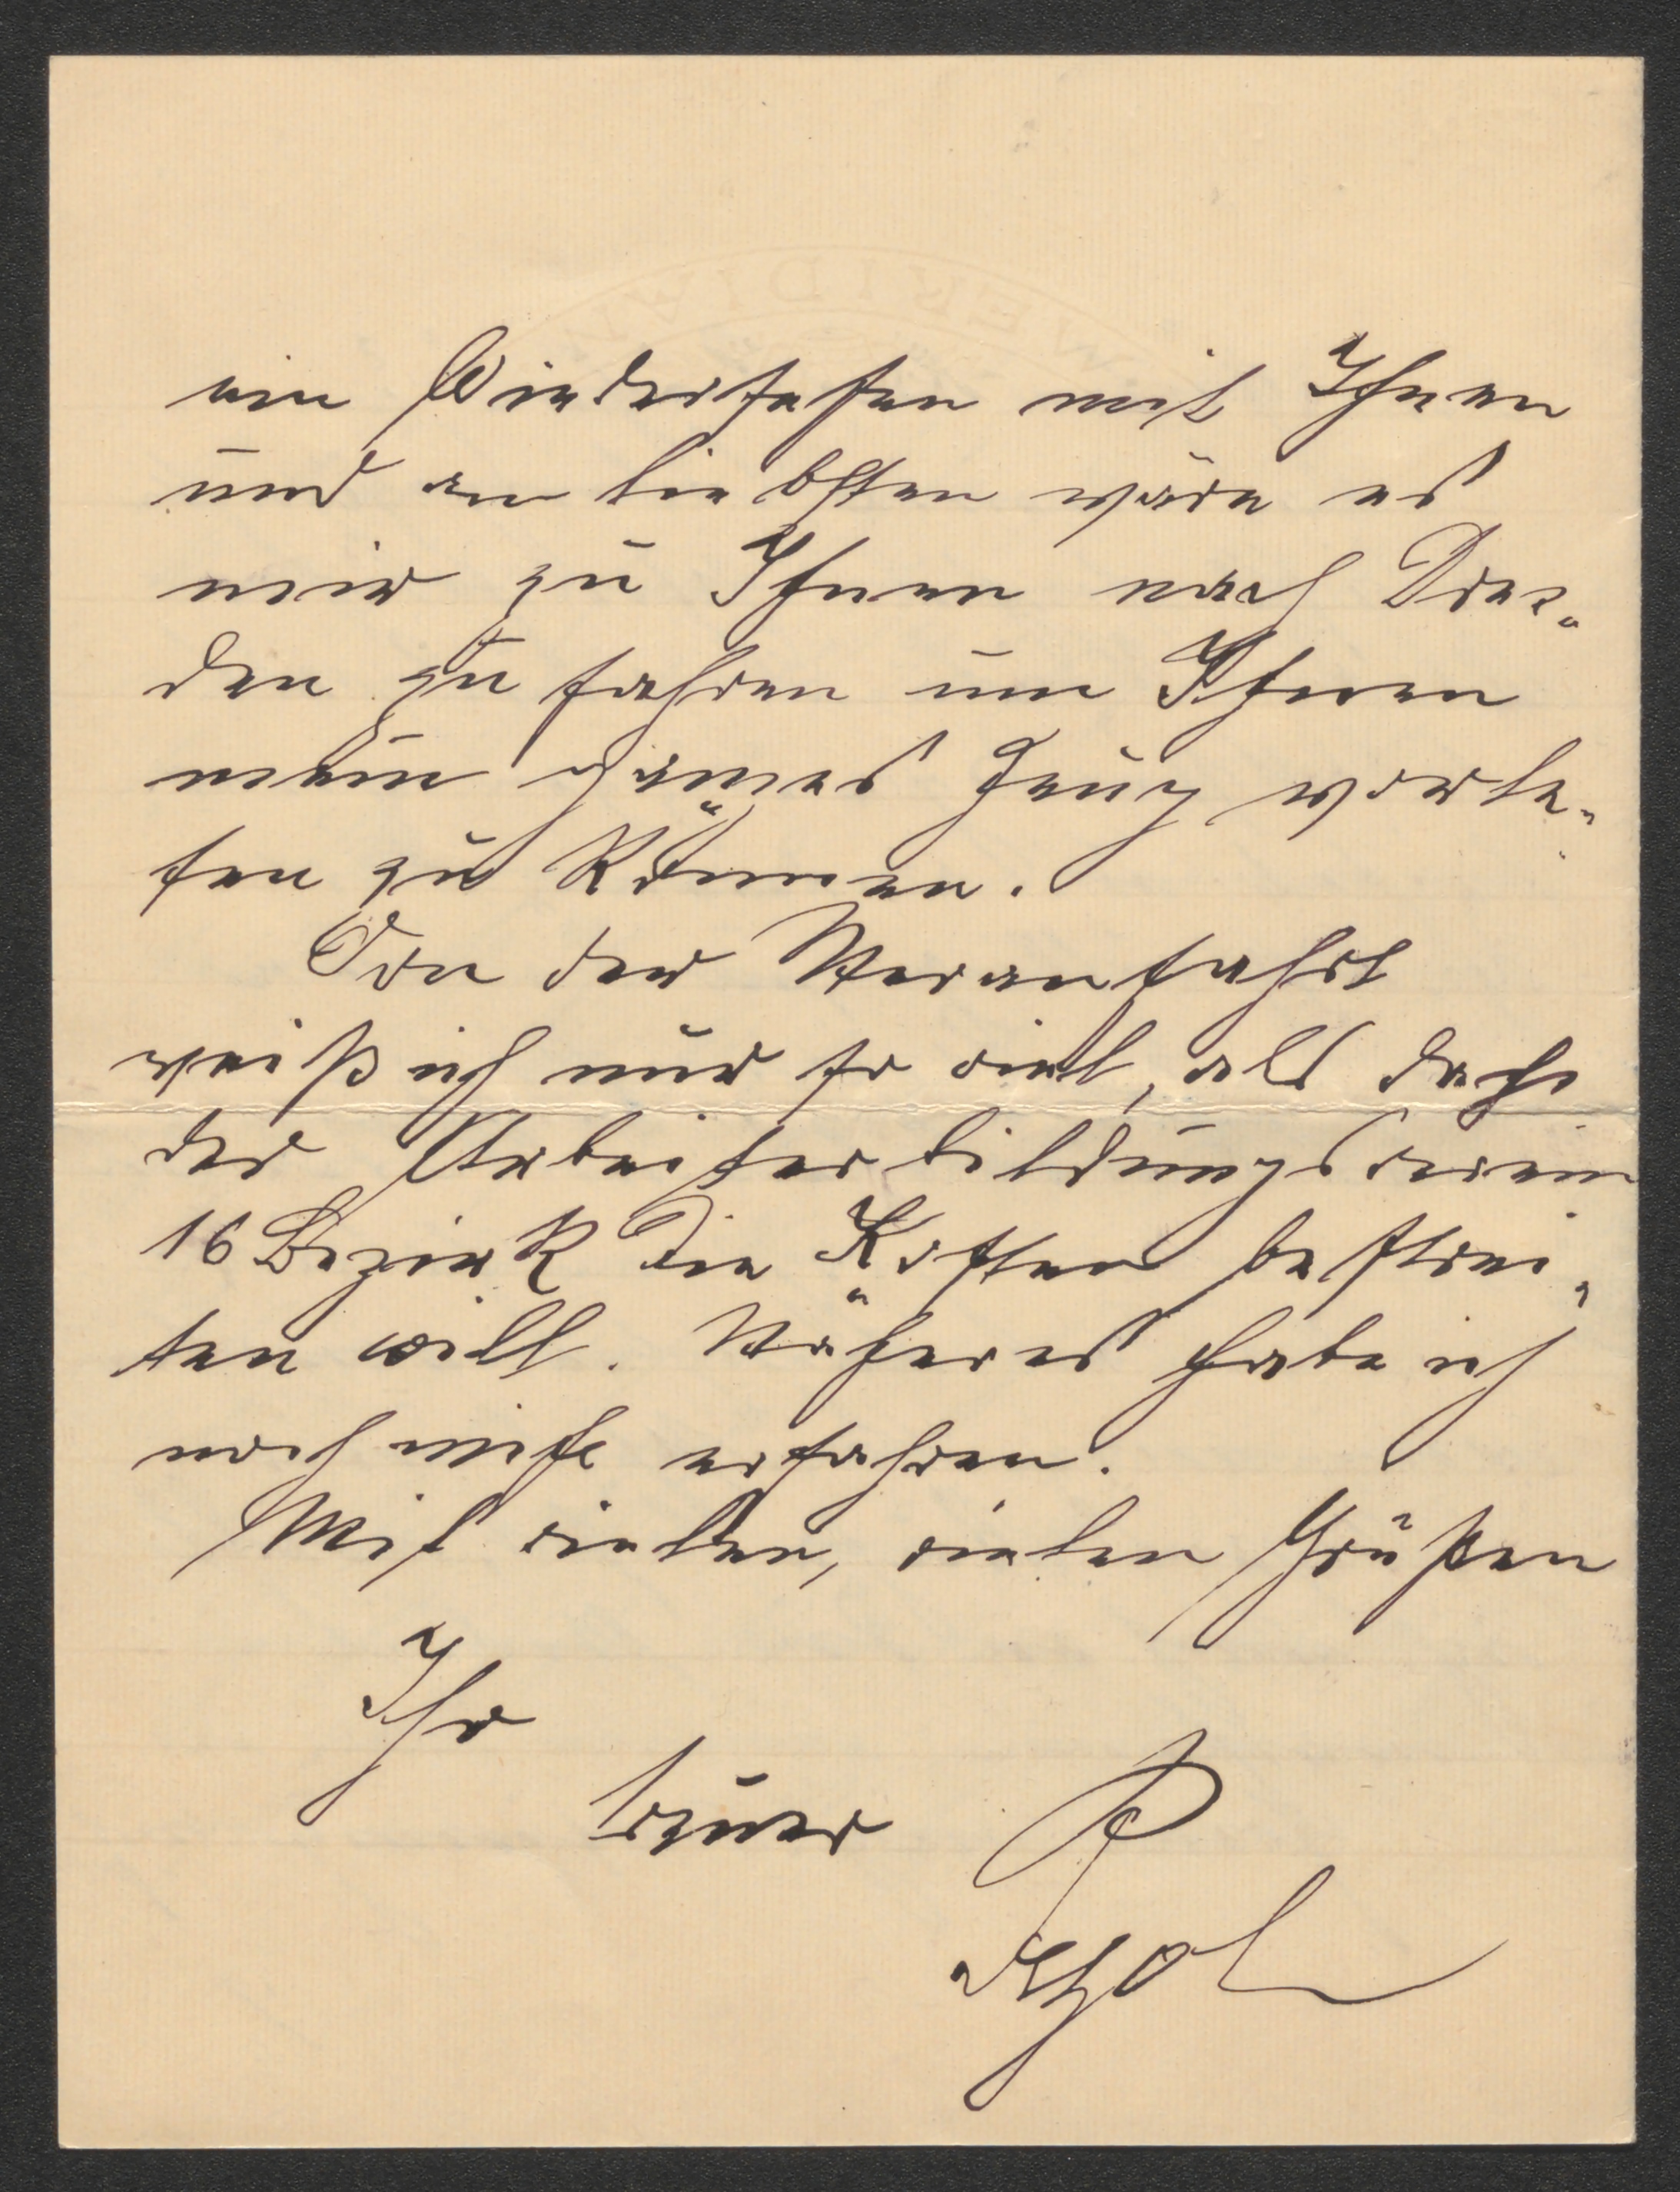 ein Wiedersehen mit Ihnen
und am liebsten wäre es
mir zu Ihnen nach Dres-
den zu fahren um Ihnen
mein ganzes Zeug vorle-
sen zu können.
Von der Meranfahrt
weiß ich nur so viel, als dass
der Arbeiterbildungsverein
16 Bezirk die Kosten bestrei-
ten will. Näheres habe ich
noch nicht erfahren.
Mit vielen, vielen Grüßen
Ihr
treuer
Petzold